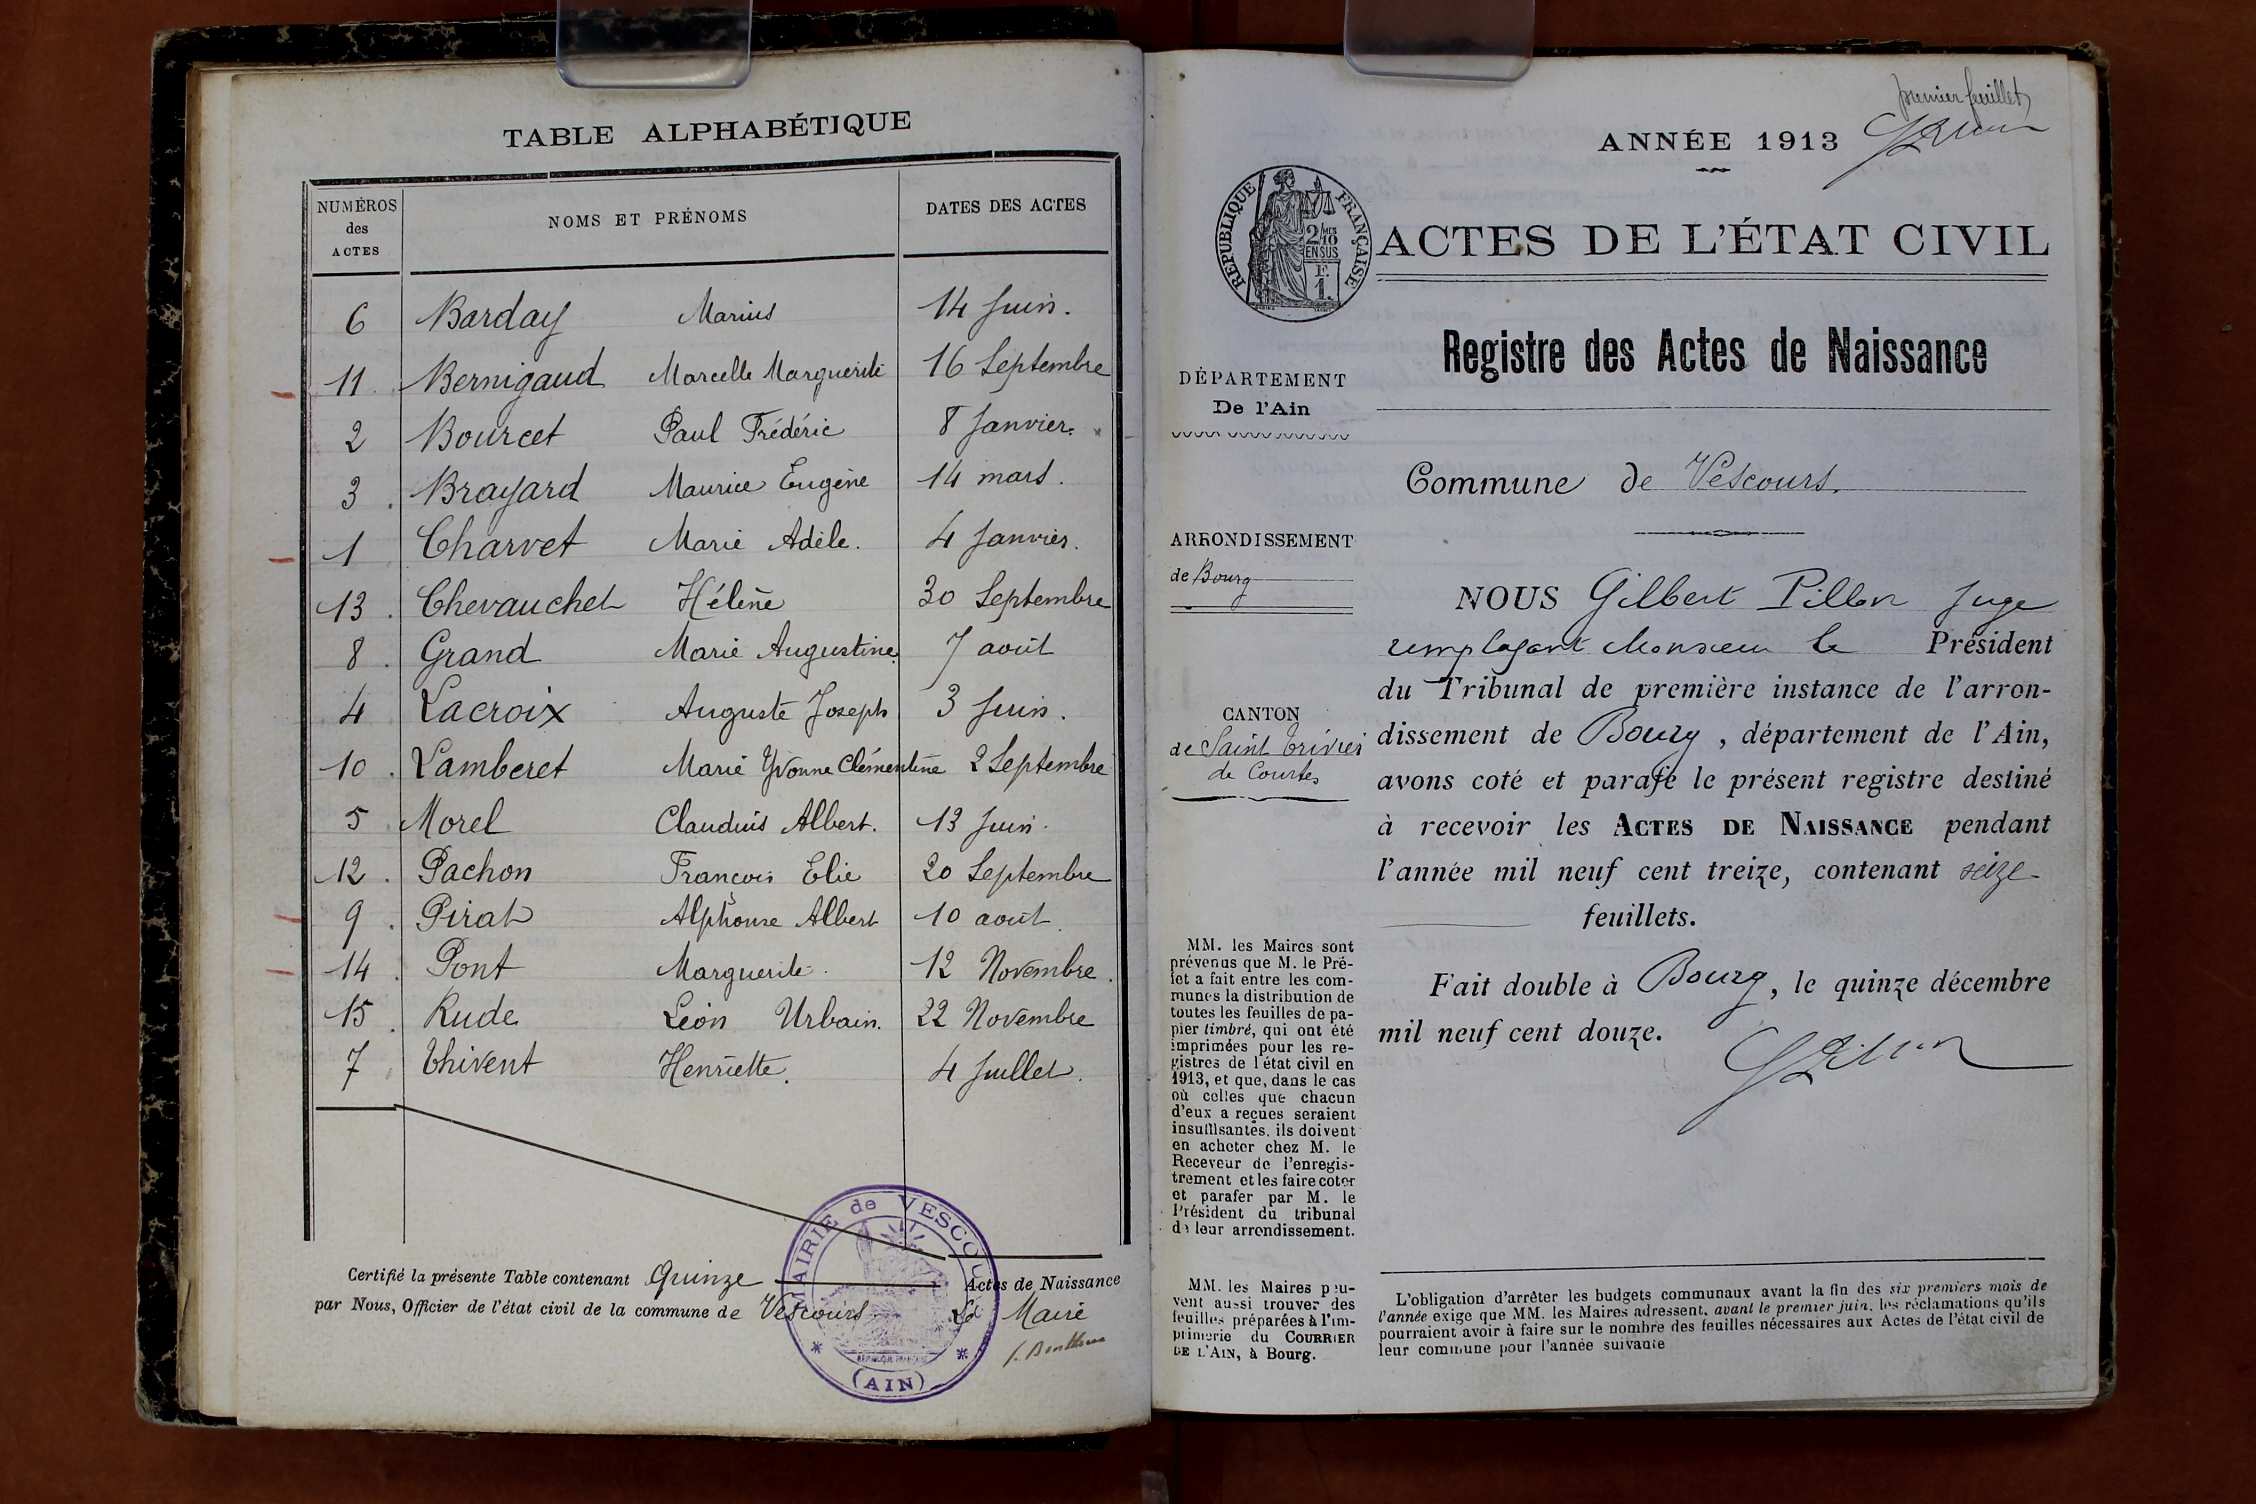 TABLE ALPHABÉTIQUE
NUMÉROS
des
ACTES
NOMS ET PRÉNOMS
DATES DES ACTES
6 Barday Marius 14 Juin.
11 Bernigaud Marcelle Marguerite 16 Septembre
2 Bourcet Paul Frédéric 8 Janvier.
3. Brayard Maurice Eugène 14 mars.
1 Charvet Marie Adèle. 4 Janvier.
13. Chevauchet Hélène 30 Septembre
8. Grand Marie Augustine. 7 août
4 Lacroix Auguste Joseph 3 Juin.
10. Lamberet Marie Yvonne Clémentine 2 Septembre
5 Morel Claudius Albert. 13 Juin.
12. Pachon François Elie 20 Septembre
9. Pirat Alphonse Albert 10 août.
14. Pont Marguerite. 12 Novembre.
15. Rude Léon Urbain. 22 Novembre
7 Thivent Henriette. 4 Juillet.
Certifié la présente Table contenant Quinze Actes de Naissance
par Nous, Officier de l'état civil de la commune de Vescours Le Maire
MAIRIE de VESCOURS
(AIN)
premier feuillet
ANNÉE 1913
RÉPUBLIQUE FRANÇAISE
2/10 MES
EN SUS
F.
1.
ACTES DE L'ÉTAT CIVIL
Registre des Actes de Naissance
DÉPARTEMENT
De l'Ain
Commune de Vescours.
ARRONDISSEMENT
de Bourg
CANTON
de Saint Trivier
de Courtes
NOUS Gilbert Pillon Juge
remplaçant Monsieur le Président
du Tribunal de première instance de l'arron-
dissement de Bourg, département de l'Ain,
avons coté et parafé le présent registre destiné
à recevoir les ACTES DE NAISSANCE pendant
l'année mil neuf cent treize, contenant seize
feuillets.
Fait double à Bourg, le quinze décembre
mil neuf cent douze.
MM. les Maires sont
prévenus que M. le Pré-
fet a fait entre les com-
munes la distribution de
toutes les feuilles de pa-
pier timbré, qui ont été
imprimées pour les re-
gistres de l'état civil en
1913, et que, dans le cas
où celles que chacun
d'eux a reçues seraient
insuffisantes, ils doivent
en acheter chez M. le
Receveur de l'enregis-
trement et les faire coter
et parafer par M. le
Président du tribunal
de leur arrondissement.
MM. les Maires peu-
vent aussi trouver des
feuilles préparées à l'im-
primerie du COURRIER
DE L'AIN, à Bourg.
L'obligation d'arrêter les budgets communaux avant la fin des six premiers mois de
l'année exige que MM. les Maires adressent, avant le premier juin, les réclamations qu'ils
pourraient avoir à faire sur le nombre des feuilles nécessaires aux Actes de l'état civil de
leur commune pour l'année suivante